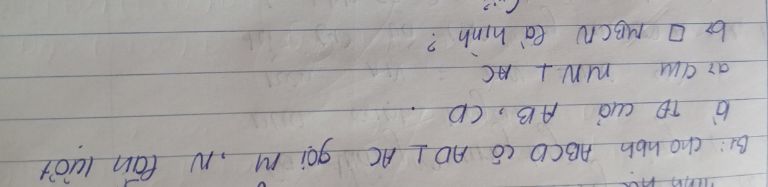 B1: cho hbh ABCD có AD ⊥ AC gọi M, N lần lượt
là TĐ của AB, CD.
a, CM MN ⊥ AC
b, □ MBCN là hình?